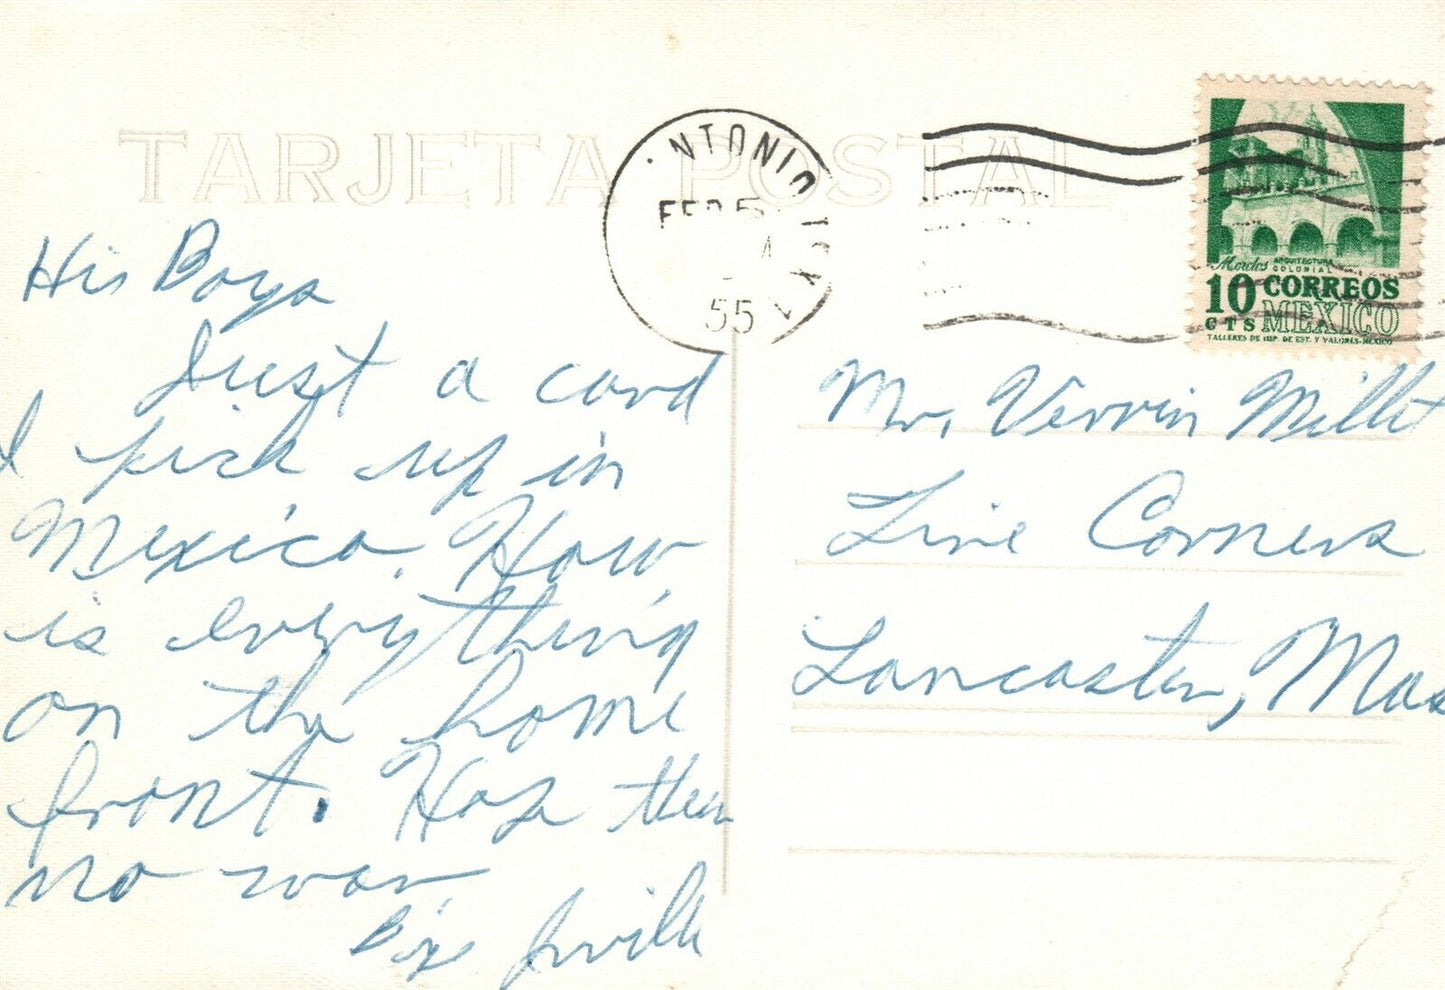 TARJETA POSTAL
NTONIO
FEB 5
A
55
TEX
Morelos ARQUITECTURA
COLONIAL
10 CORREOS
CTS MEXICO
TALLERES DE IMP. DE EST. Y VALORES-MEXICO
His Boys
Just a card
I pick up in
Mexico. How
is everything
on the home
front. Hop ther
no war,
Mr. Vernin Millet
Line Corners
Lancaster, Mas